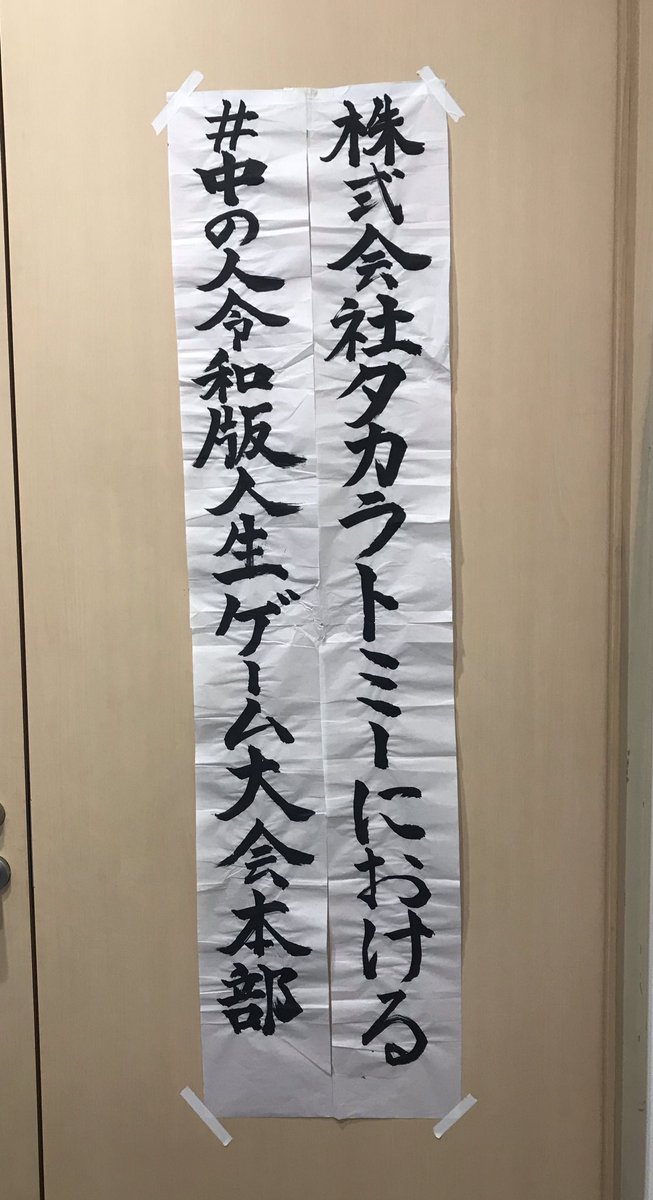 株式会社タカラトミーにおける
#中の人令和版人生ゲーム大会本部